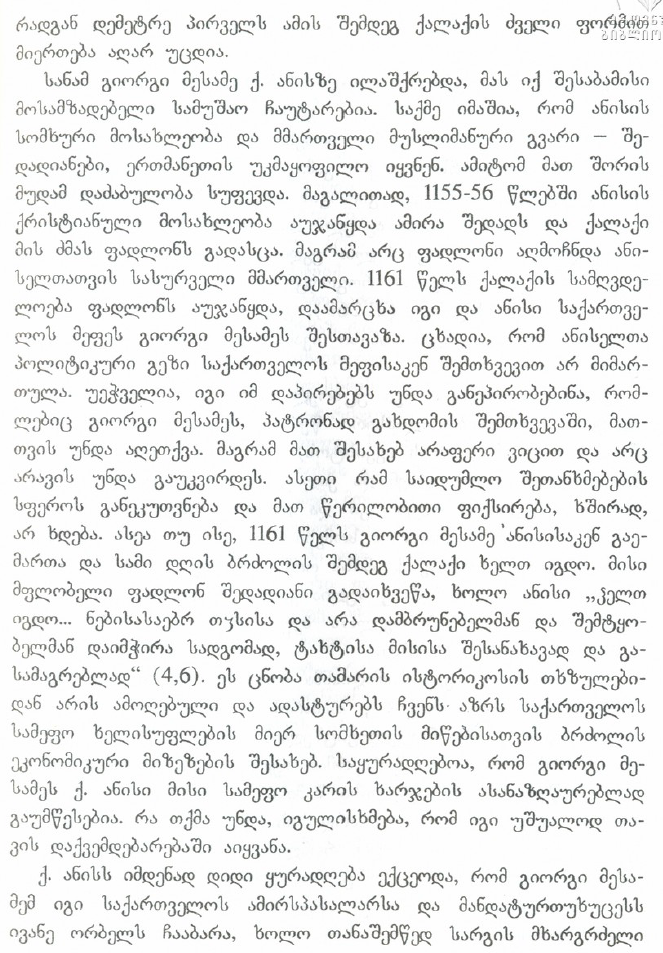 რადგან დემეტრე პირველს ამის შემდეგ ქალაქის ძველი ფორმით
მიერთება აღარ უცდია.
სანამ გიორგი მესამე ქ. ანისზე ილაშქრებდა, მას იქ შესაბამისი
მოსამზადებელი სამუშაო ჩაუტარებია. საქმე იმაშია, რომ ანისის
სომხური მოსახლეობა და მმართველი მუსლიმანური გვარი — შე-
დადიანები, ერთმანეთის უკმაყოფილო იყვნენ. ამიტომ მათ შორის
მუდამ დაძაბულობა სუფევდა. მაგალითად, 1155-56 წლებში ანისის
ქრისტიანული მოსახლეობა აუჯანყდა ამირა შედადს და ქალაქი
მის ძმას ფადლონს გადასცა. მაგრამ არც ფადლონი აღმოჩნდა ანი-
სელთათვის სასურველი მმართველი. 1161 წელს ქალაქის სამღვდე-
ლოება ფადლონს აუჯანყდა, დაამარცხა იგი და ანისი საქართვე-
ლოს მეფეს გიორგი მესამეს შესთავაზა. ცხადია, რომ ანისელთა
პოლიტიკური გეზი საქართველოს მეფისაკენ შემთხვევით არ მიმარ-
თულა. უეჭველია, იგი იმ დაპირებებს უნდა განეპირობებინა, რომ-
ლებიც გიორგი მესამეს, პატრონად გახდომის შემთხვევაში, მათ-
თვის უნდა აღეთქვა. მაგრამ მათ შესახებ არაფერი ვიცით და არც
არავის უნდა გაუკვირდეს. ასეთი რამ საიდუმლო შეთანხმებების
სფეროს განეკუთვნება და მათ წერილობითი ფიქსირება, ხშირად,
არ ხდება. ასეა თუ ისე, 1161 წელს გიორგი მესამე ანისისაკენ გაე-
მართა და სამი დღის ბრძოლის შემდეგ ქალაქი ხელთ იგდო. მისი
მფლობელი ფადლონ შედადიანი გადაიხვეწა, ხოლო ანისი „ჴელთ
იგდო... ნებისასაებრ თჳსისა და არა დამბრუნებელმან და შემტყო-
ბელმან დაიმჭირა სადგომად, ტახტისა მისისა შესანახავად და გა-
სამაგრებლად“ (4,6). ეს ცნობა თამარის ისტორიკოსის თხზულები-
დან არის ამოღებული და ადასტურებს ჩვენს აზრს საქართველოს
სამეფო ხელისუფლების მიერ სომხეთის მიწებისათვის ბრძოლის
ეკონომიკური მიზეზების შესახებ. საყურადღებოა, რომ გიორგი მე-
სამეს ქ. ანისი მისი სამეფო კარის ხარჯების ასანაზღაურებლად
გაუმწესებია. რა თქმა უნდა, იგულისხმება, რომ იგი უშუალოდ თა-
ვის დაქვემდებარებაში აიყვანა.
ქ. ანისს იმდენად დიდი ყურადღება ექცეოდა, რომ გიორგი მესა-
მემ იგი საქართველოს ამირსპასალარსა და მანდატურთუხუცესს
ივანე ორბელს ჩააბარა, ხოლო თანაშემწედ სარგის მხარგრძელი